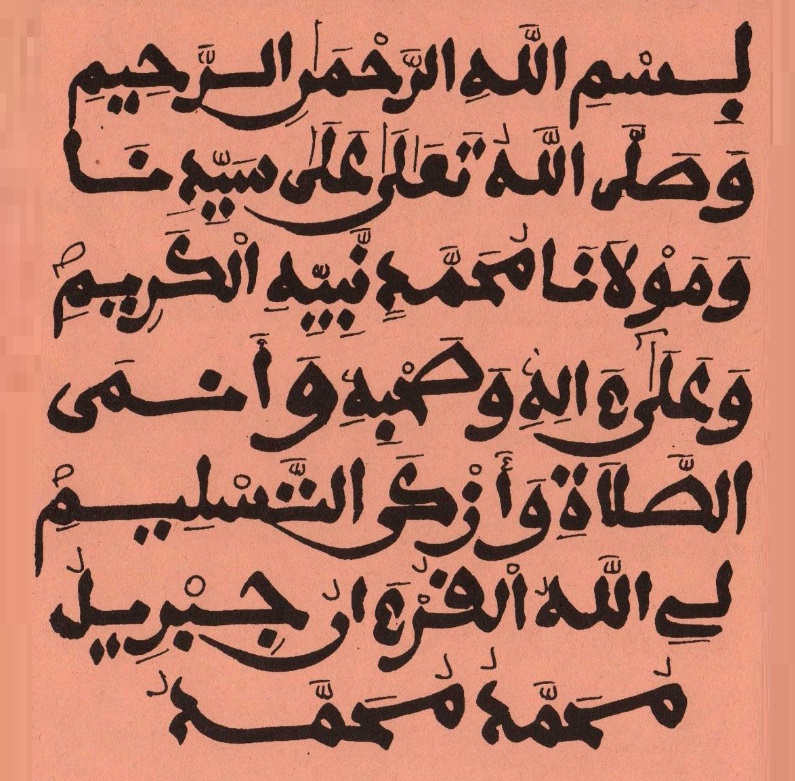 بِسْمِ اللَّهِ الرَّحْمَٰنِ الرَّحِيمِ
وَصَلَّى اللَّهُ تَعَٰلَىٰ عَلَىٰ سَيِّدِنَا
وَمَوْلَانَا مُحَمَّدٍ نَّبِيِّهِ الْكَرِيمِ
وَعَلَىٰ ءَالِهِ وَصَحْبِهِ وَأَنْمَى
الصَّلَاةِ وَأَزْكَى التَّسْلِيمِ
لِي اللَّهُ الْقُرْءَانُ جِبْرِيلُ
مُحَمَّدُ مُحَمَّدُ